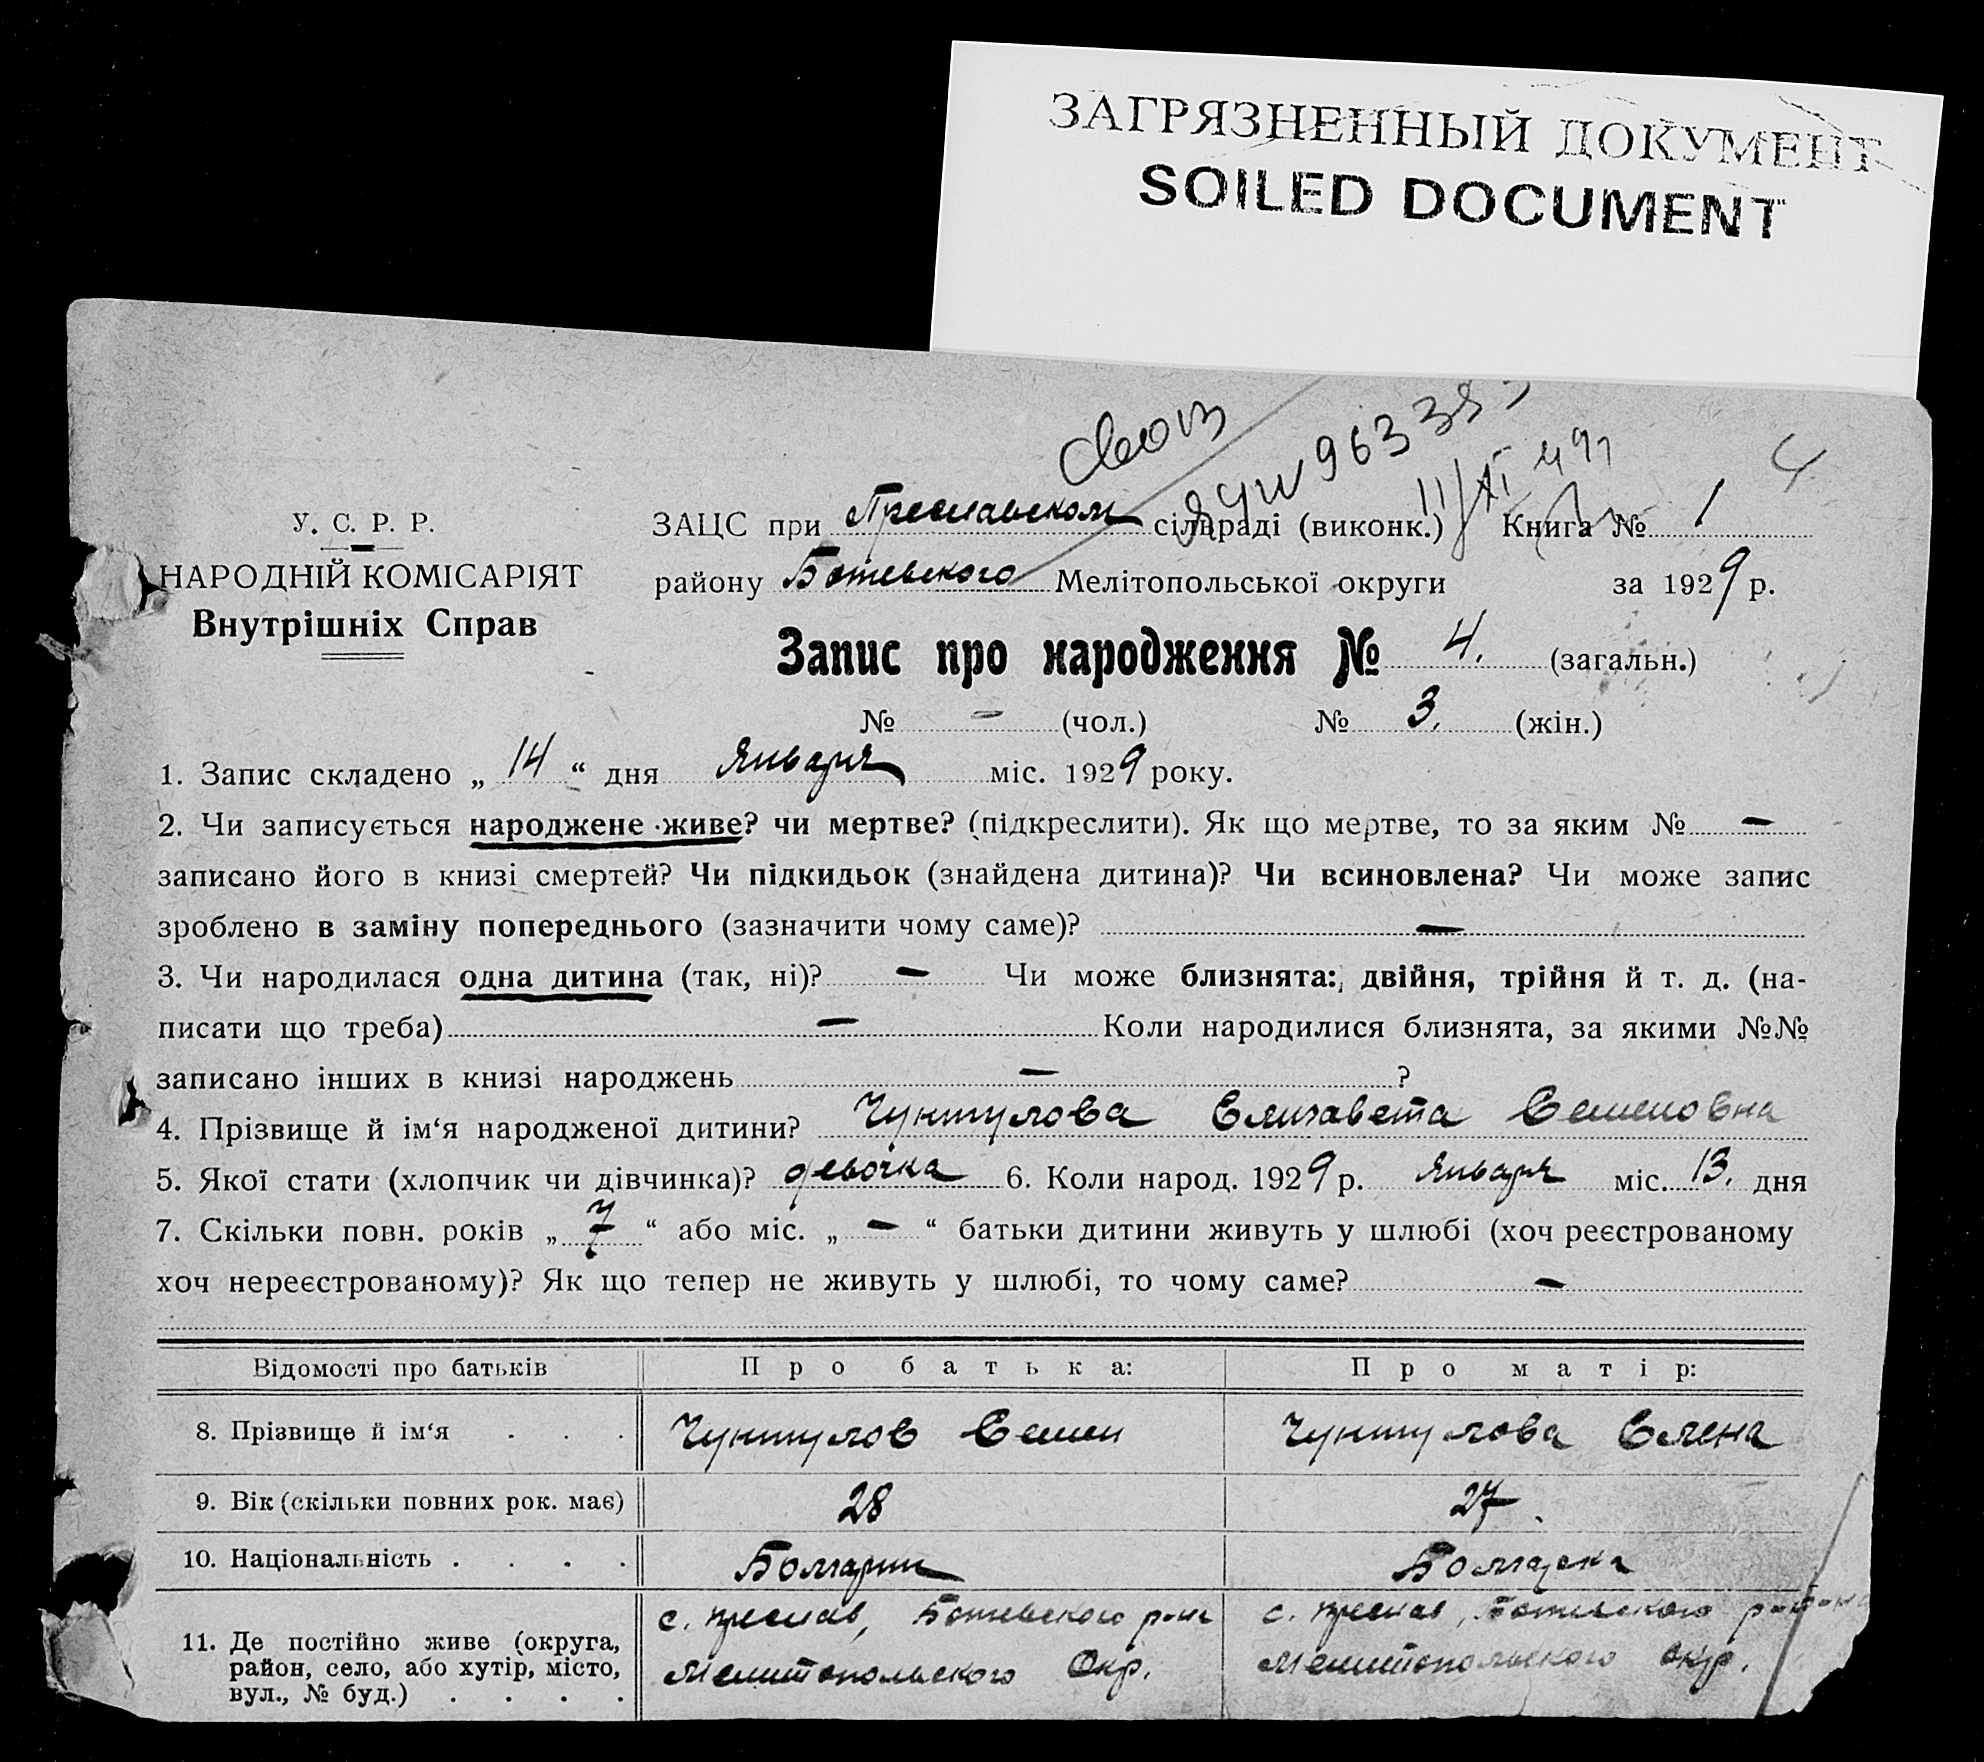 ЗАГРЯЗНЕННЫЙ ДОКУМЕНТ
SOILED DOCUMENT
4
У. С. Р. Р.
НАРОДНІЙ КОМІСАРІЯТ
Внутрішніх Справ
ЗАЦС при Преславском сільраді (виконк.) Книга № 1
району Ботевского Мелітопольської округи за 1929 р.
Запис про народження № 4. (загальн.)
№ – (чол.) № 3. (жін.)
1. Запис складено „ 14 “ дня Января міс. 1929 року.
2. Чи записується народжене живе? чи мертве? (підкреслити). Як що мертве, то за яким № –
записано його в книзі смертей? Чи підкидьок (знайдена дитина)? Чи всиновлена? Чи може запис
зроблено в заміну попереднього (зазначити чому саме)? –
3. Чи народилася одна дитина (так, ні)? – Чи може близнята: двійня, трійня й т. д. (на-
писати що треба) – Коли народилися близнята, за якими №№
записано інших в книзі народжень – ?
4. Прізвище й ім‘я народженої дитини? Чунтулова Елизавета Семеновна
5. Якої стати (хлопчик чи дівчинка)? девочка 6. Коли народ. 1929 р. Января міс. 13. дня
7. Скільки повн. років „ 7 “ або міс. „ – “ батьки дитини живуть у шлюбі (хоч реєстрованому
хоч нереєстрованому)? Як що тепер не живуть у шлюбі, то чому саме? –
Відомості про батьків Про батька: Про матір:
8. Прізвище й ім‘я . . . Чунтулов Семен Чунтулова Елена
9. Вік (скільки повних рок. має) 28 27.
10. Національність . . . . Болгарин Болгарка
11. Де постійно живе (округа,
район, село, або хутір, місто,
вул., № буд.) . . . .
с. Преслав, Ботевского р-на
Мелитопольского Окр.
с. Преслав, Ботевского района
Мелитопольского окр.